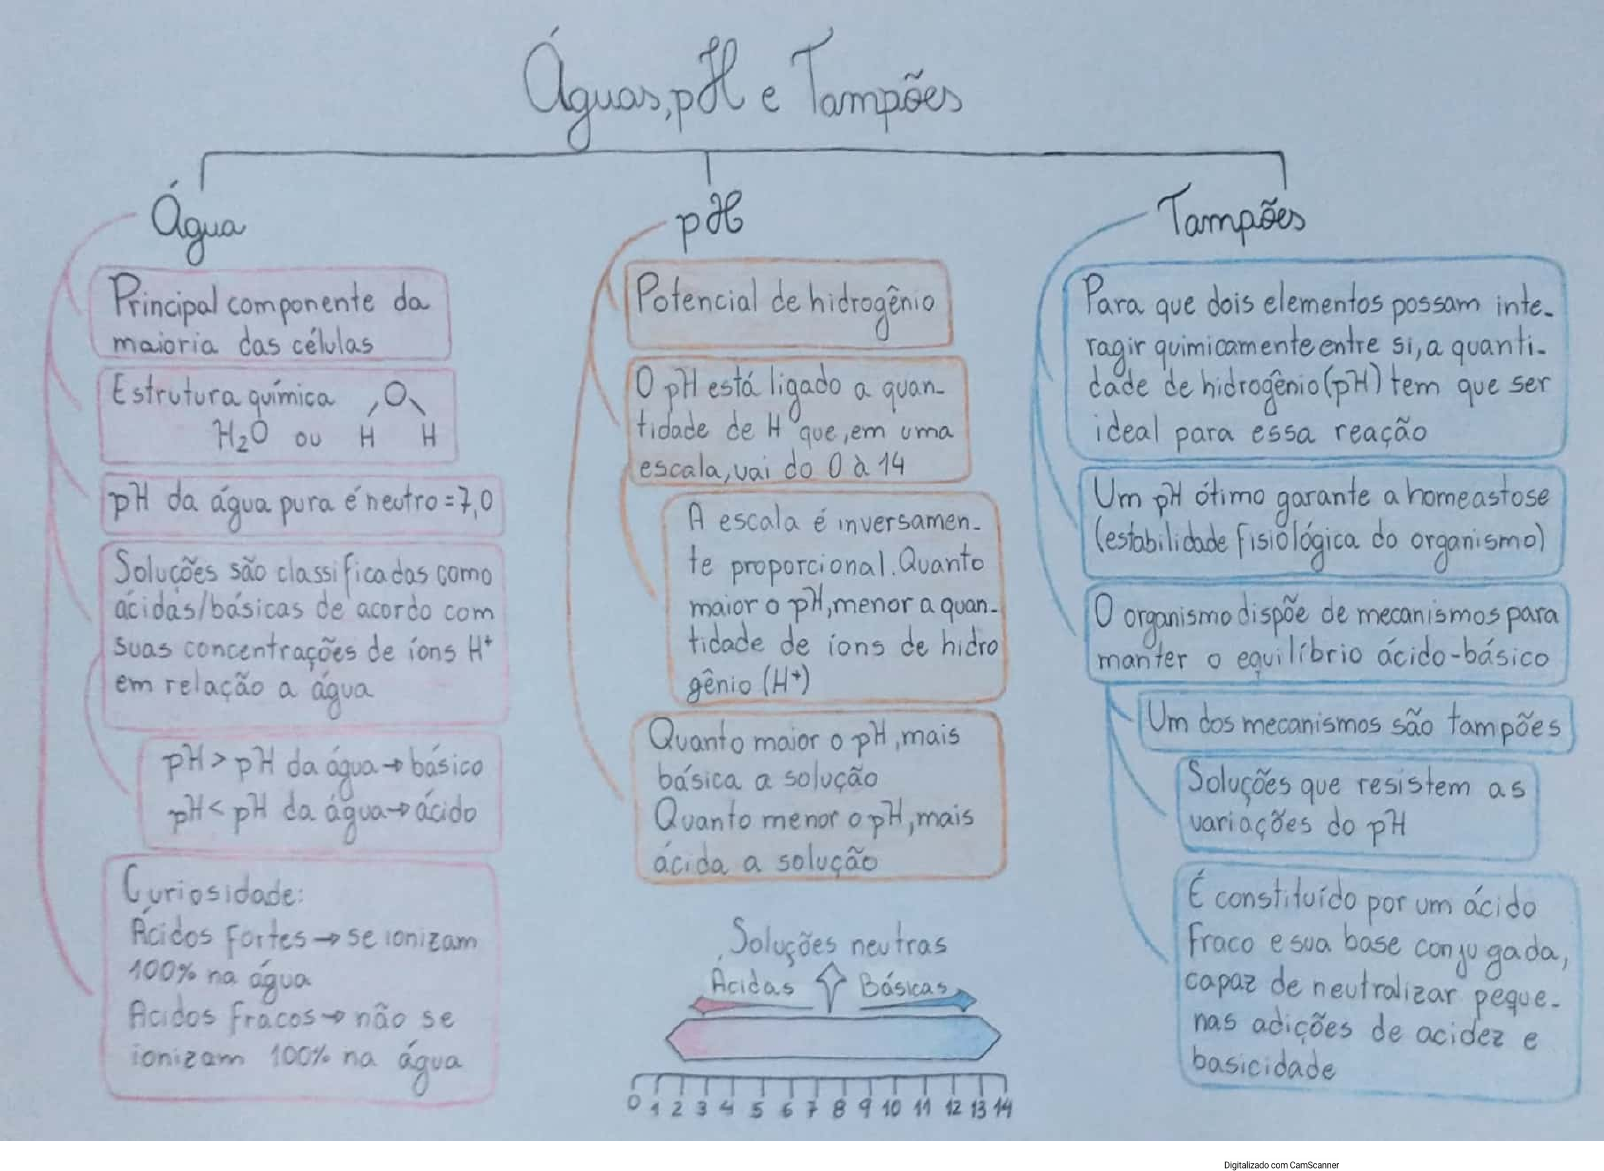 Águas, pH e Tampões
Água
Principal componente da
maioria das células
Estrutura química O
H₂O ou H H
pH da água pura é neutro = 7,0
Soluções são classificadas como
ácidas/básicas de acordo com
suas concentrações de íons H⁺
em relação a água
pH > pH da água → básico
pH < pH da água → ácido
Curiosidade:
Ácidos fortes → se ionizam
100% na água
Ácidos fracos → não se
ionizam 100% na água
pH
Potencial de hidrogênio
O pH está ligado a quan-
tidade de H⁺ que, em uma
escala, vai do 0 à 14
A escala é inversamen-
te proporcional. Quanto
maior o pH, menor a quan-
tidade de íons de hidro
gênio (H⁺)
Quanto maior o pH, mais
básica a solução
Quanto menor o pH, mais
ácida a solução
Soluções neutras
Ácidas Básicas
0 1 2 3 4 5 6 7 8 9 10 11 12 13 14
Tampões
Para que dois elementos possam inte-
ragir quimicamente entre si, a quanti-
dade de hidrogênio (pH) tem que ser
ideal para essa reação
Um pH ótimo garante a homeastose
(estabilidade fisiológica do organismo)
O organismo dispõe de mecanismos para
manter o equilíbrio ácido-básico
Um dos mecanismos são tampões
Soluções que resistem as
variações do pH
É constituído por um ácido
fraco e sua base conjugada,
capaz de neutralizar peque-
nas adições de acidez e
basicidade
Digitalizado com CamScanner